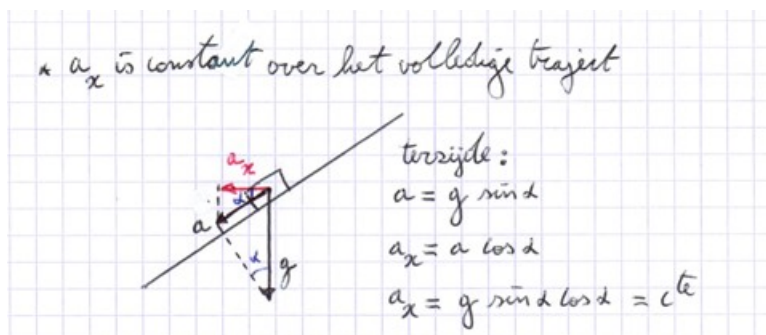 * a_x is constant over het volledige traject
a_x
α
a
α
g
terzijde:
a = g sin α
a_x = a cos α
a_x = g sin α cos α = c^te